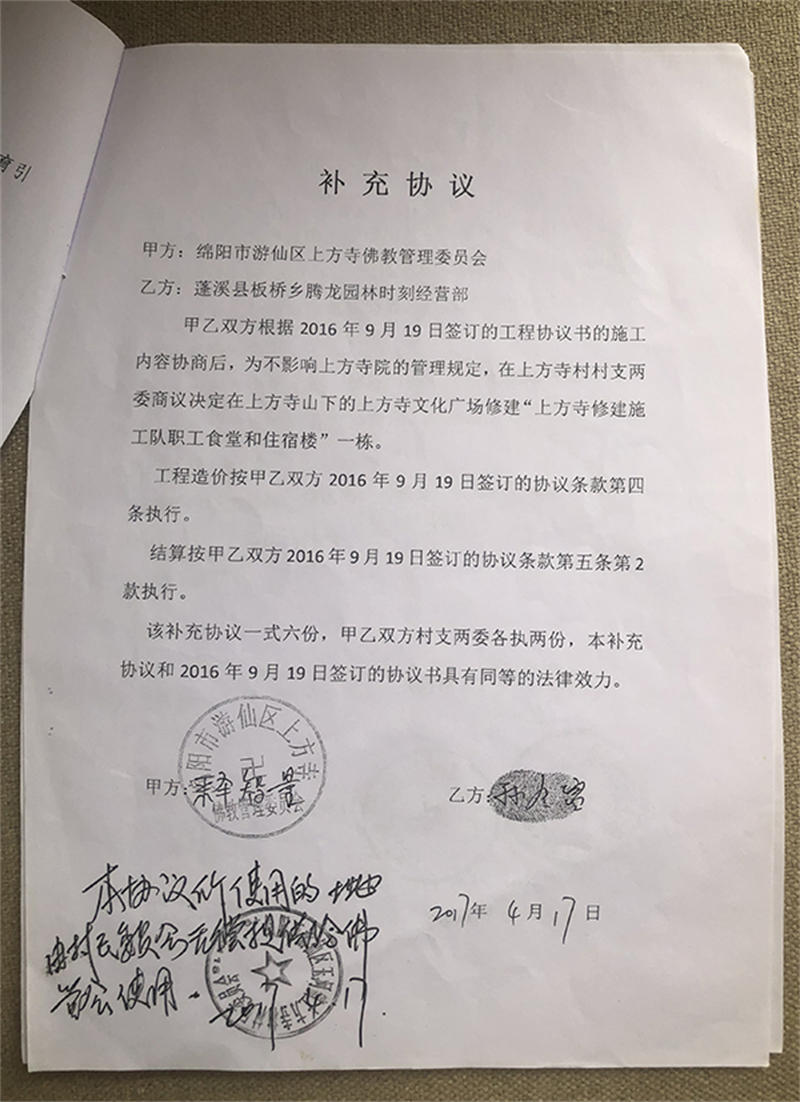 育引
补充协议
甲方：绵阳市游仙区上方寺佛教管理委员会
乙方：蓬溪县板桥乡腾龙园林时刻经营部
甲乙双方根据 2016 年 9 月 19 日签订的工程协议书的施工
内容协商后，为不影响上方寺院的管理规定，在上方寺村村支两
委商议决定在上方寺山下的上方寺文化广场修建“上方寺修建施
工队职工食堂和住宿楼”一栋。
工程造价按甲乙双方 2016 年 9 月 19 日签订的协议条款第四
条执行。
结算按甲乙双方 2016 年 9 月 19 日签订的协议条款第五条第 2
款执行。
该补充协议一式六份，甲乙双方村支两委各执两份，本补充
协议和 2016 年 9 月 19 日签订的协议书具有同等的法律效力。
阳市游仙区上方寺
佛教管理委员会
甲方：
乙方：
2017年 4月17日
本协议所使用的地
由村民委员会无偿提供给佛
教会使用。2017.4.17